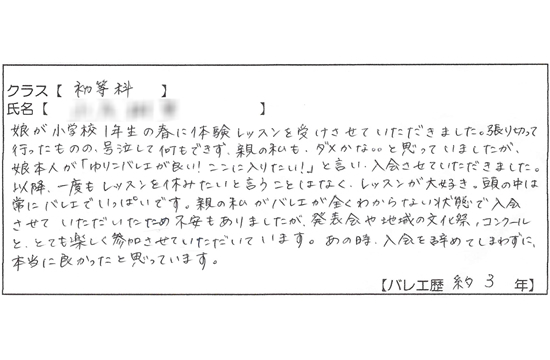 クラス【 初等科 】
氏名【 】
娘が小学校1年生の春に体験レッスンを受けさせていただきました。張り切って
行ったものの、号泣して何もできず、親の私も、ダメかな。。と思っていましたが、
娘本人が「ゆりこバレエが良い!ここに入りたい!」と言い、入会させていただきました。
以降、一度もレッスンを休みたいと言うことはなく、レッスンが大好き。頭の中は
常にバレエでいっぱいです。親の私がバレエが全くわからない状態で入会
させていただいたため不安もありましたが、発表会や地域の文化祭、コンクール
と、とても楽しく参加させていただいています。あの時、入会を辞めてしまわずに、
本当に良かったと思っています。
【バレエ歴 約 3 年】